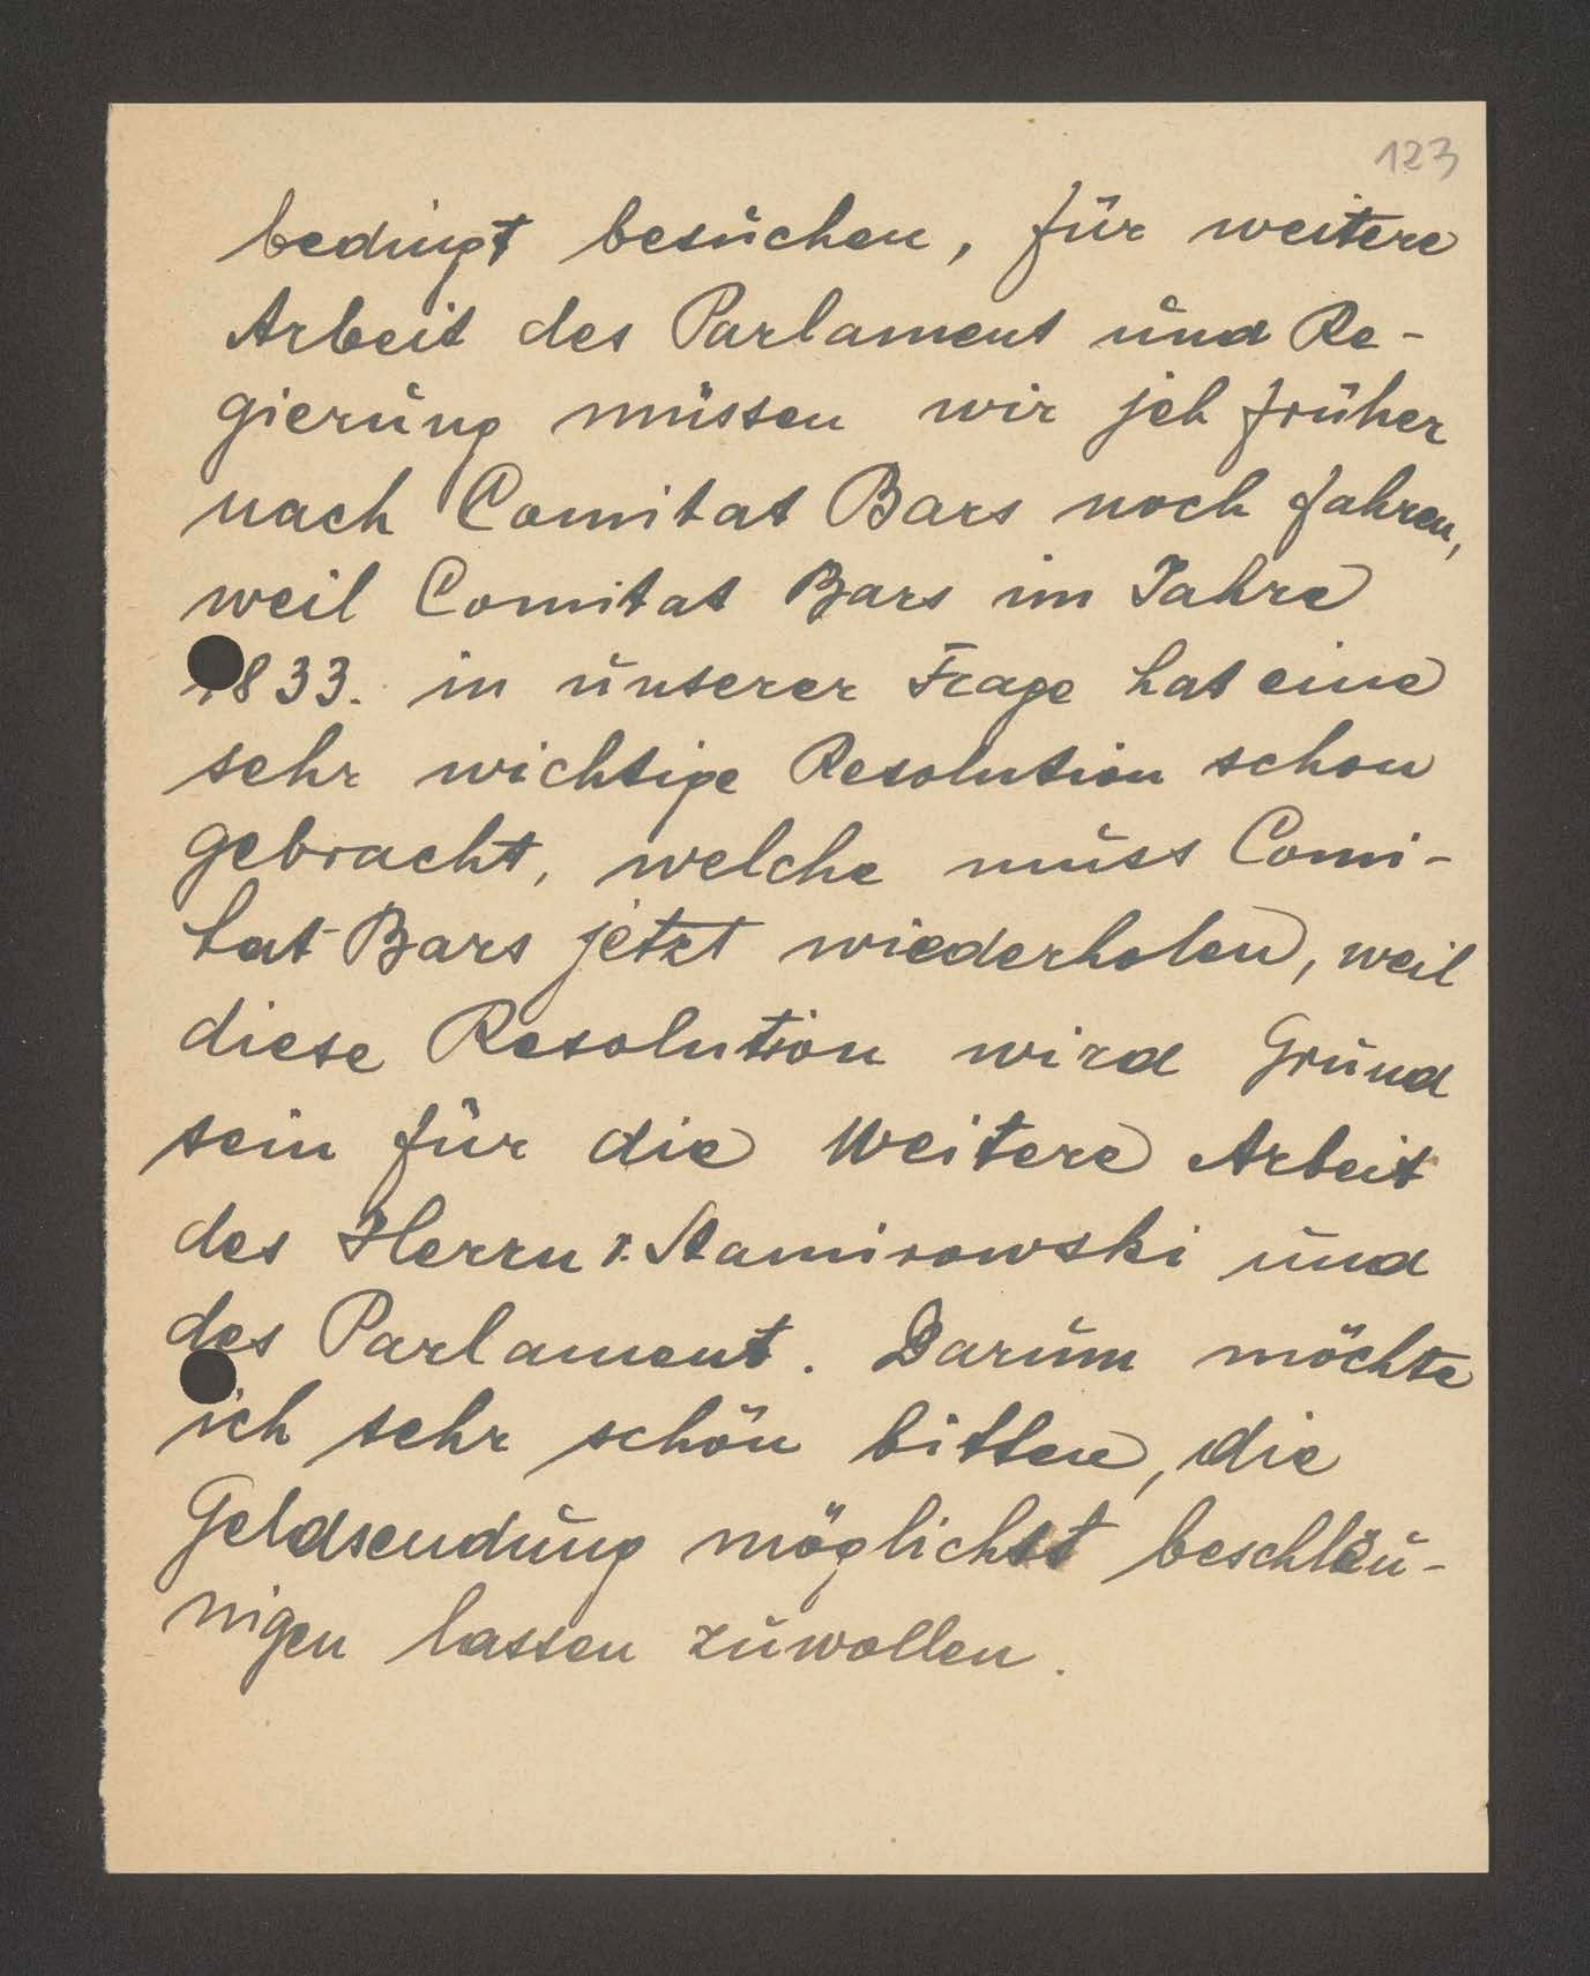 123
bedingt besuchen, für weitere
Arbeit des Parlament und Re-
gierung müssen wir jeh früher
nach Comitat Bars noch fahren,
weil Comitat Bars im Jahre
1833. in unserer Frage hat eine
sehr wichtige Resolution schon
gebracht, welche muss Comi-
tat Bars jetzt wiederholen, weil
diese Resolution wird Grund
sein für die Weitere Arbeit
des Herrn v. Stamirowski und
des Parlament. Darum möchte
ich sehr schön bitten, die
Geldsendung möglichst beschläu-
nigen lassen zuwollen.